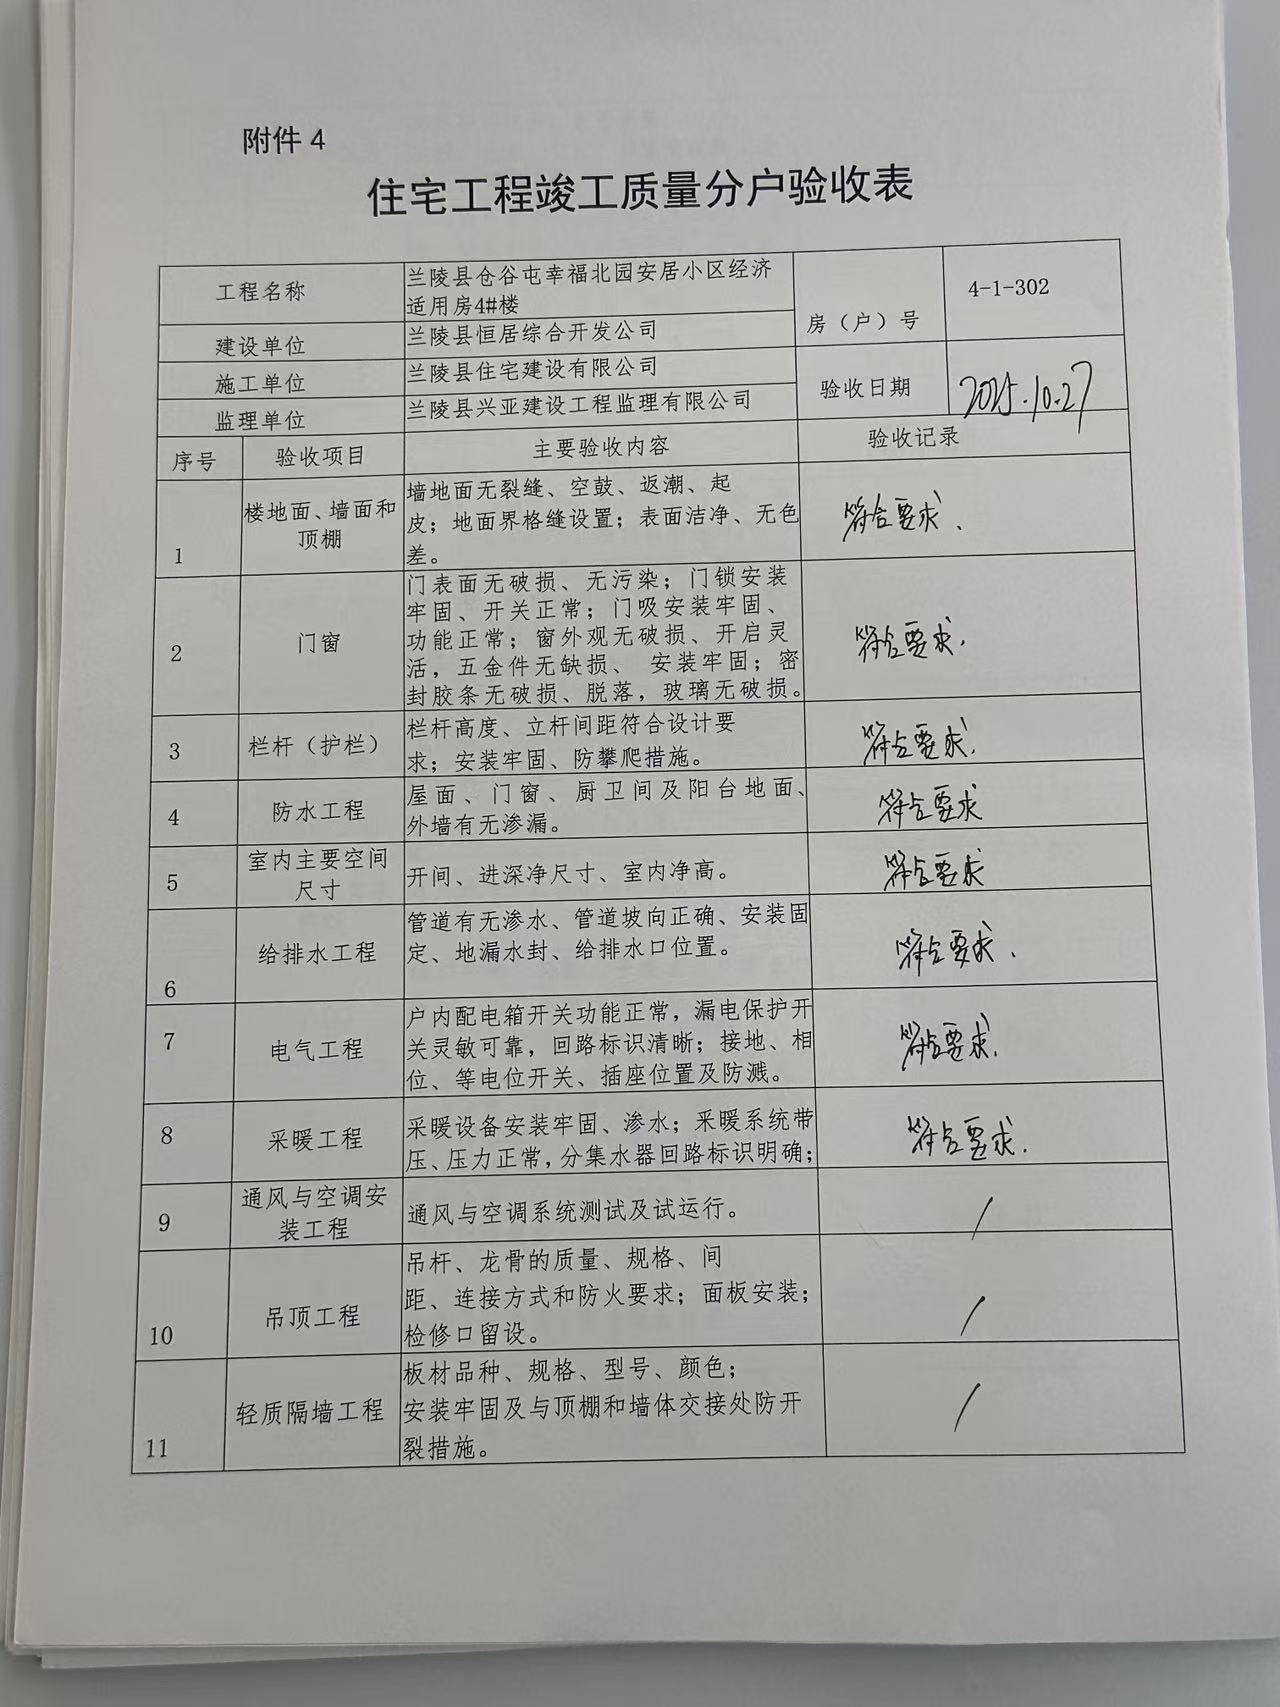 附件 4
住宅工程竣工质量分户验收表
工程名称
兰陵县仓谷屯幸福北园安居小区经济
适用房4#楼
房（户）号
4-1-302
建设单位
兰陵县恒居综合开发公司
施工单位
兰陵县住宅建设有限公司
验收日期
2025.10.27
监理单位
兰陵县兴亚建设工程监理有限公司
序号 验收项目 主要验收内容 验收记录
1
楼地面、墙面和
顶棚
墙地面无裂缝、空鼓、返潮、起
皮；地面界格缝设置；表面洁净、无色
差。
符合要求.
2
门窗
门表面无破损、无污染；门锁安装
牢固、开关正常；门吸安装牢固、
功能正常；窗外观无破损、开启灵
活，五金件无缺损、 安装牢固；密
封胶条无破损、脱落，玻璃无破损。
符合要求.
3
栏杆（护栏）
栏杆高度、立杆间距符合设计要
求；安装牢固、防攀爬措施。
符合要求.
4
防水工程
屋面、门窗、厨卫间及阳台地面、
外墙有无渗漏。
符合要求
5
室内主要空间
尺寸
开间、进深净尺寸、室内净高。
符合要求
6
给排水工程
管道有无渗水、管道坡向正确、安装固
定、地漏水封、给排水口位置。
符合要求.
7
电气工程
户内配电箱开关功能正常，漏电保护开
关灵敏可靠，回路标识清晰；接地、相
位、等电位开关、插座位置及防溅。
符合要求.
8
采暖工程
采暖设备安装牢固、渗水；采暖系统带
压、压力正常，分集水器回路标识明确；
符合要求.
9
通风与空调安
装工程
通风与空调系统测试及试运行。
/
10
吊顶工程
吊杆、龙骨的质量、规格、间
距、连接方式和防火要求；面板安装；
检修口留设。
/
11
轻质隔墙工程
板材品种、规格、型号、颜色；
安装牢固及与顶棚和墙体交接处防开
裂措施。
/